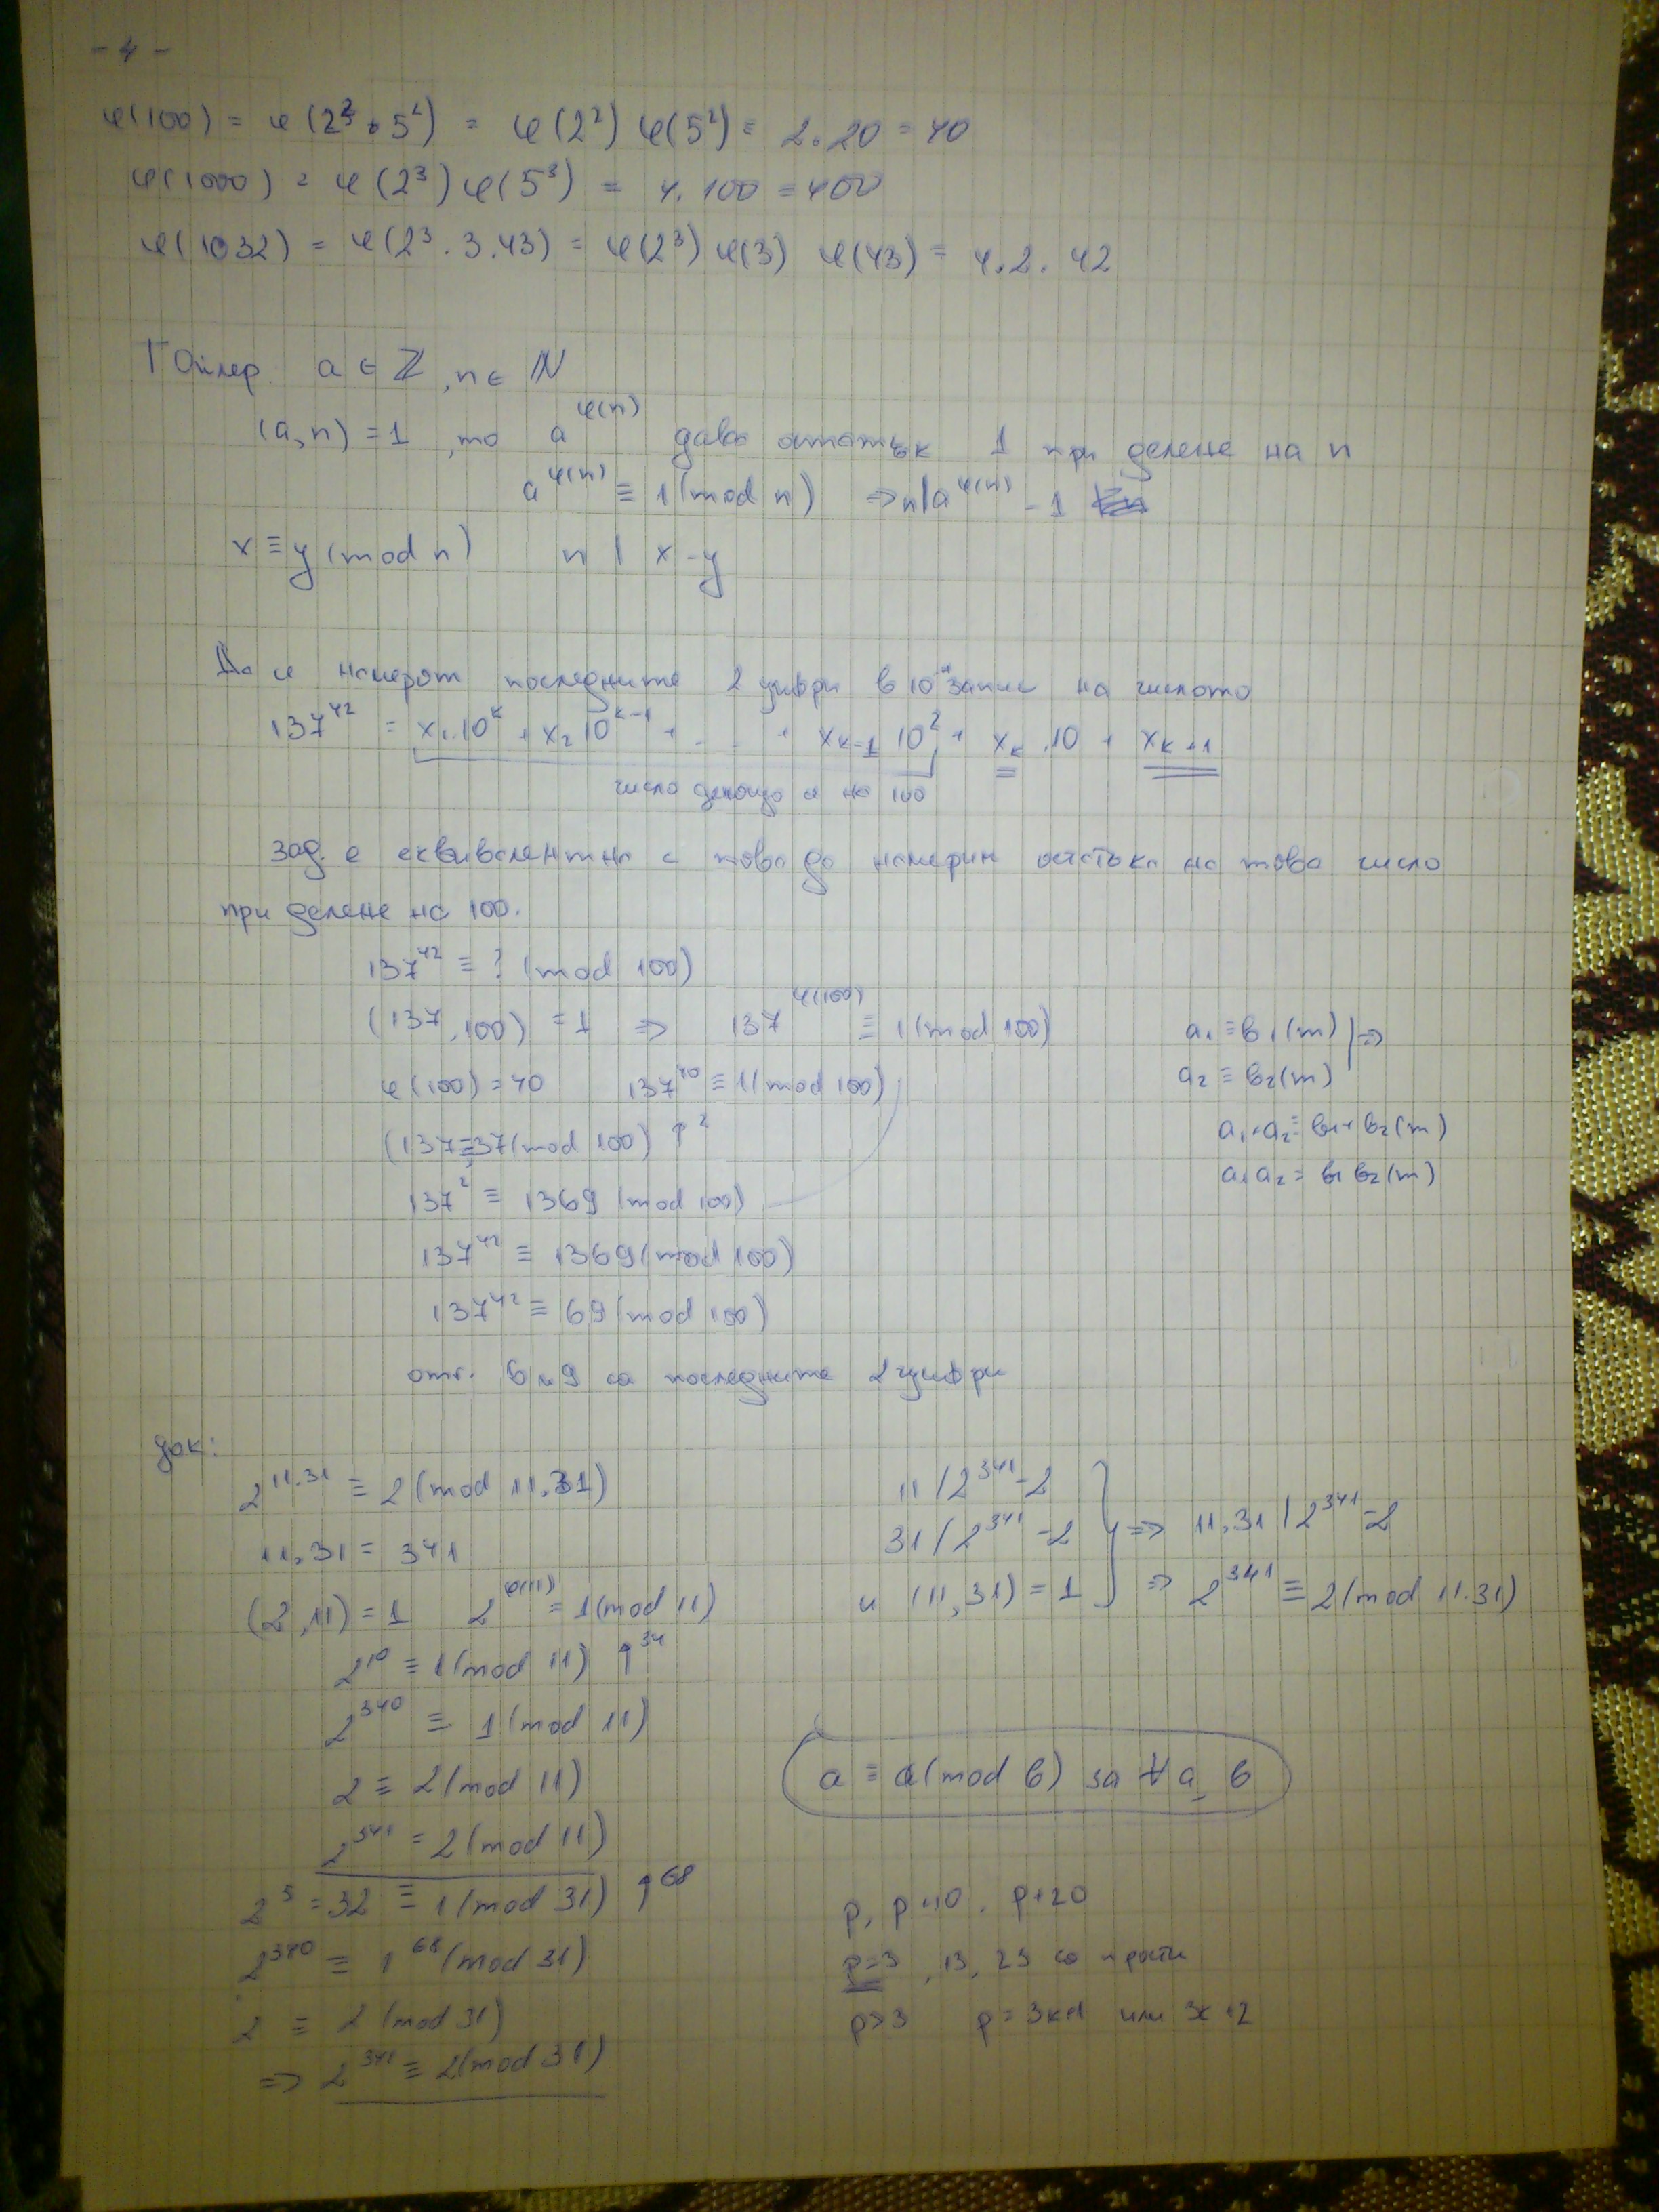 - 4 -
φ(100) = φ(2² · 5²) = φ(2²) φ(5²) = 2.20 = 40
φ(1000) = φ(2³) φ(5³) = 4.100 = 400
φ(1032) = φ(2³.3.43) = φ(2³) φ(3) φ(43) = 4.2.42
Т Ойлер. a ∈ ℤ, n ∈ ℕ
(a,n) = 1, то a^φ(n) дава остатък 1 при делене на n
a^φ(n) ≡ 1 (mod n) => n | a^φ(n) - 1
x ≡ y (mod n) n | x - y
Да се намерят последните 2 цифри в 10 запис на числото
137^42 = x₁.10^k + x₂ 10^k-1 + ... + x_k-1 10² + x_k .10 + x_k+1
число делящо се на 100
зад. е еквивалентна с това да намерим остатъка на това число
при делене на 100.
137^42 ≡ ? (mod 100)
(137, 100) = 1 => 137^φ(100) ≡ 1 (mod 100)
φ(100) = 40 137^40 ≡ 1 (mod 100)
(137 ≡ 37 (mod 100) ↑²
137² ≡ 1369 (mod 100)
137^42 ≡ 1369 (mod 100)
137^42 ≡ 69 (mod 100)
отг. 6 и 9 са последните 2 цифри
a₁ ≡ b₁ (m) | =>
a₂ ≡ b₂ (m)
a₁+a₂ ≡ b₁+b₂ (m)
a₁a₂ = b₁b₂ (m)
док:
2^11.31 ≡ 2 (mod 11.31)
11.31 = 341
(2,11) = 1 2^φ(11) = 1 (mod 11)
2^10 ≡ 1 (mod 11) ↑^34
2^340 ≡ 1 (mod 11)
2 ≡ 2 (mod 11)
2^341 = 2 (mod 11)
2^5 = 32 ≡ 1 (mod 31) ↑^68
2^340 ≡ 1^68 (mod 31)
2 ≡ 2 (mod 31)
=> 2^341 ≡ 2 (mod 31)
11 / 2^341 - 2
31 / 2^341 - 2 } => 11.31 / 2^341 - 2
и (11,31) = 1 => 2^341 ≡ 2 (mod 11.31)
a ≡ a (mod b) за ∀ a, b
p, p+10, p+20
p=3, 13, 23 са прости
p>3 p = 3k+1 или 3k+2